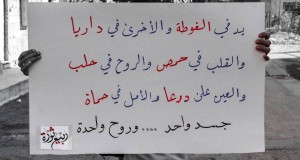 يدي في الغوطة والأخرى في داريا
والقلب في حمص والروح في حلب
والعين على درعا والأمل في حماة
جسد واحد .... وروح واحدة
ربيع ثورة